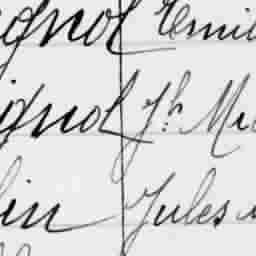 ignol Emil
ignol Jh. Mi
lin Jules